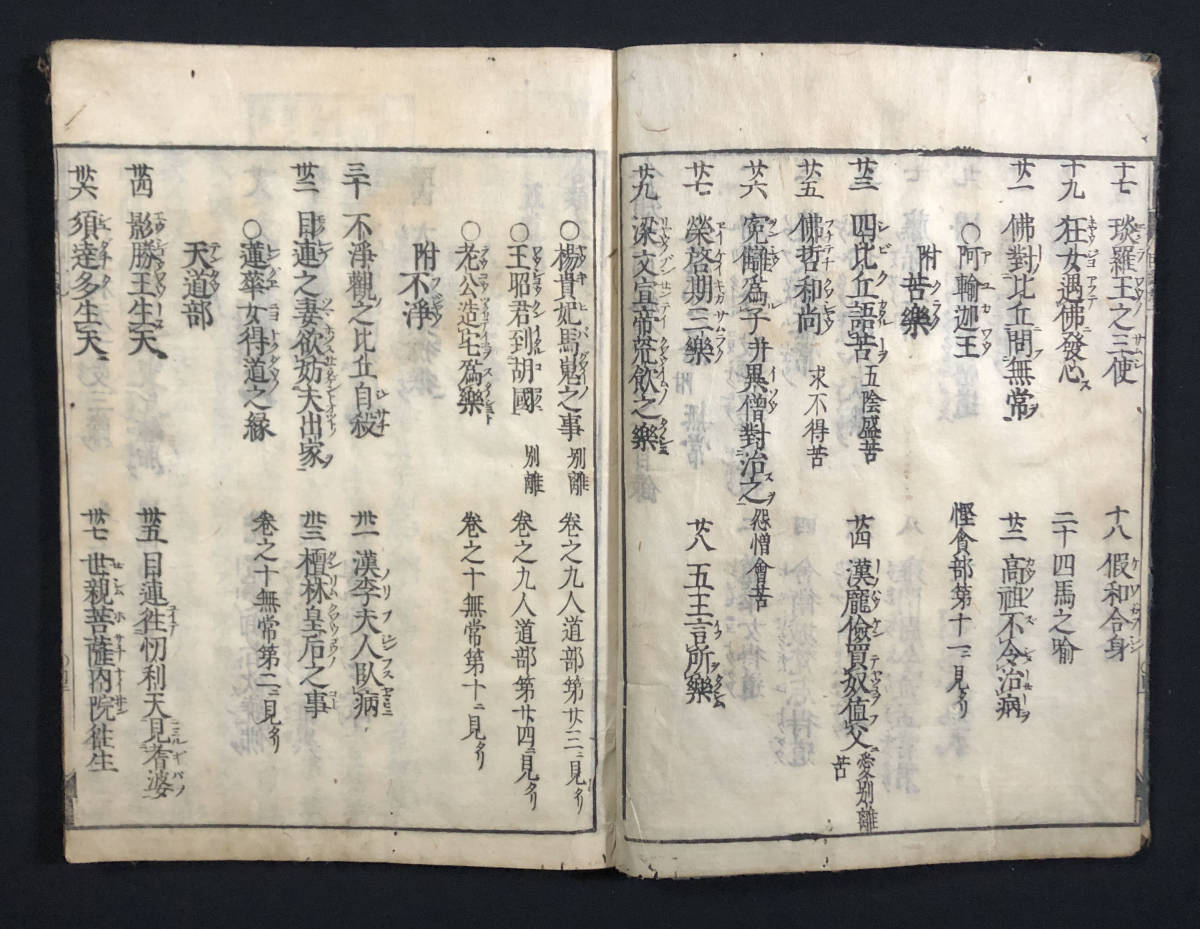 十七 琰羅王之三使 十八 假和合身
十九 狂女遇佛發心 二十 四馬之喻
廿一 佛對比丘問無常 廿二 高祖不令治病
○阿輸迦王 慳貪部第十一ニ見タリ
附苦樂
廿三 四比丘語苦 五陰盛苦 廿四 漢龐儉買奴值父 愛別離苦
廿五 佛哲和尚 求不得苦
廿六 寃讎為子并異僧對治之 怨憎會苦
廿七 榮啓期三樂 廿八 五王言所樂
廿九 梁文宣帝荒飲之樂
○楊貴妃馬嵬之事 別離 卷之九人道部第廿三ニ見タリ
○王昭君到胡國 別離 卷之九人道部第廿四ニ見タリ
○老公造宅為樂 卷之十無常第十ニ見タリ
附不淨
三十 不淨觀之比丘自殺 卅一 漢李夫人臥病
卅二 目連之妻欲妨夫出家 卅三 檀林皇后之事
○蓮華女得道之緣 卷之十無常第二ニ見タリ
天道部
卅四 影勝王生天 卅五 目連徃忉利天見耆婆
卅六 須達多生天 卅七 世親菩薩內院徃生